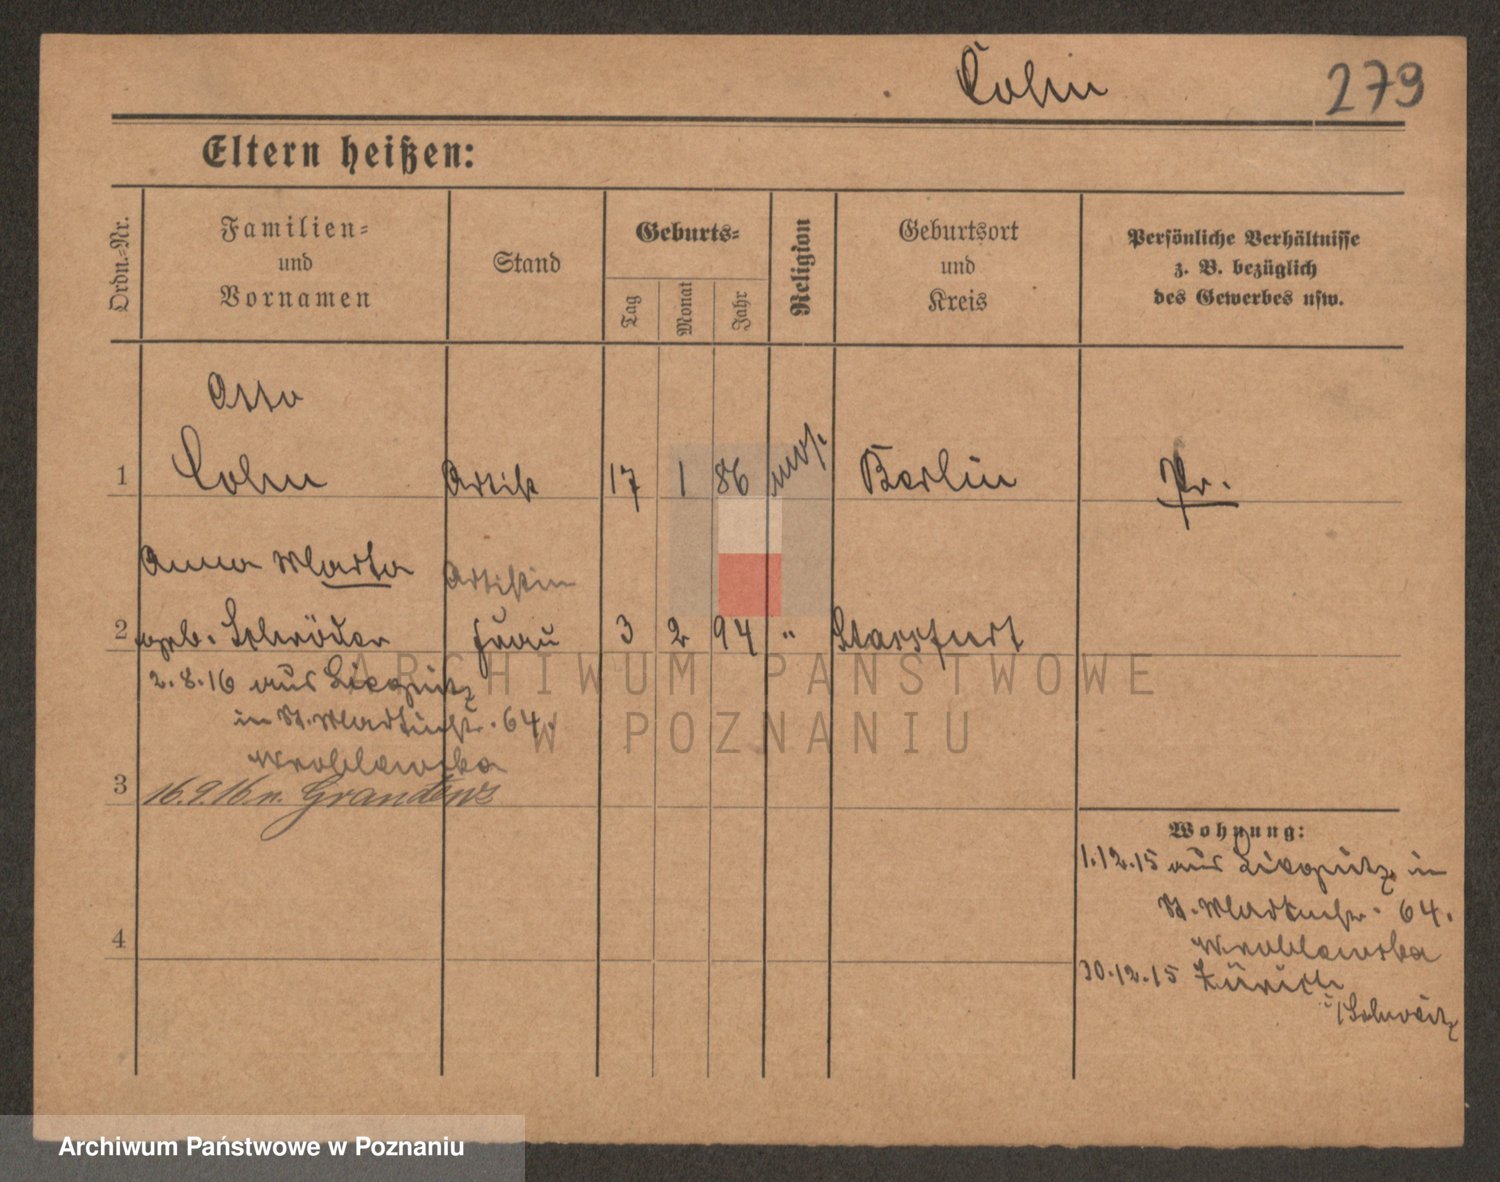 Cohn
279
Eltern heißen:
Ordn.-Nr.
Familien-
und
Vornamen
Stand
Geburts-
Tag
Monat
Jahr
Religion
Geburtsort
und
Kreis
Persönliche Verhältnisse
z. B. bezüglich
des Gewerbes usw.
Otto
1 Cohn Artist 17 1 86 mos. Berlin Pr.
Anna Marta Artistin
2 geb. Schröder Frau 3 2 94 " Stassfurt
2.8.16 aus
in St. Martinstr. 64.
Wroblewska
3 16.9.16 n. Graudenz
Wohnung:
1.12.15 aus in
St. Martinstr. 64.
4
Wroblewska
30.12.15 Zürich
i/Schweitz
ARCHIWUM PAŃSTWOWE
W POZNANIU
Archiwum Państwowe w Poznaniu